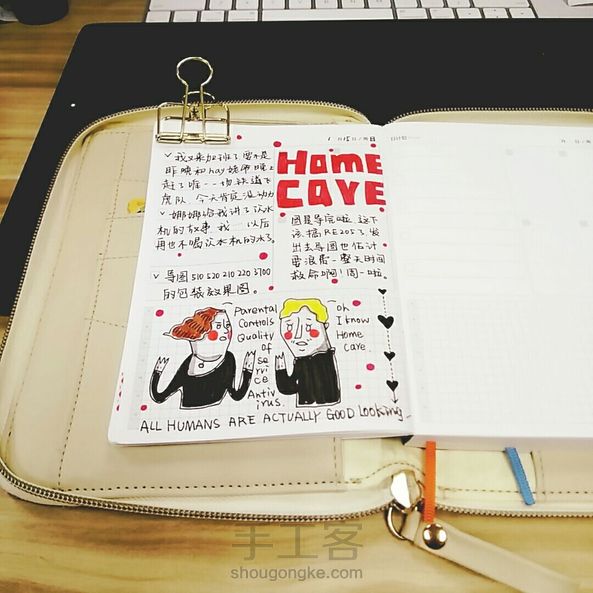 1月15日/周日
✓我又来加班了要不是
昨晚和hay姥师晚上
赶了
虎队,今天肯定没动力
✓娜娜给我讲了饮水
机的故事,我……以后
再也不喝饮水机的水了。
✓导图510 520 210 220 3700
的包装效果图。
Home
Cave
图是导完啦,这下
该搞RE205了,发
出去导图也估计
要浪费一整天时间
救命啊!周一啦。
Parental
Controls
Quality
of
se
rvi
ce
Antiv
irus.
oh
I know
Home
care.
ALL HUMANS ARE ACTUALLY GOOD looking
手工客
shougongke.com